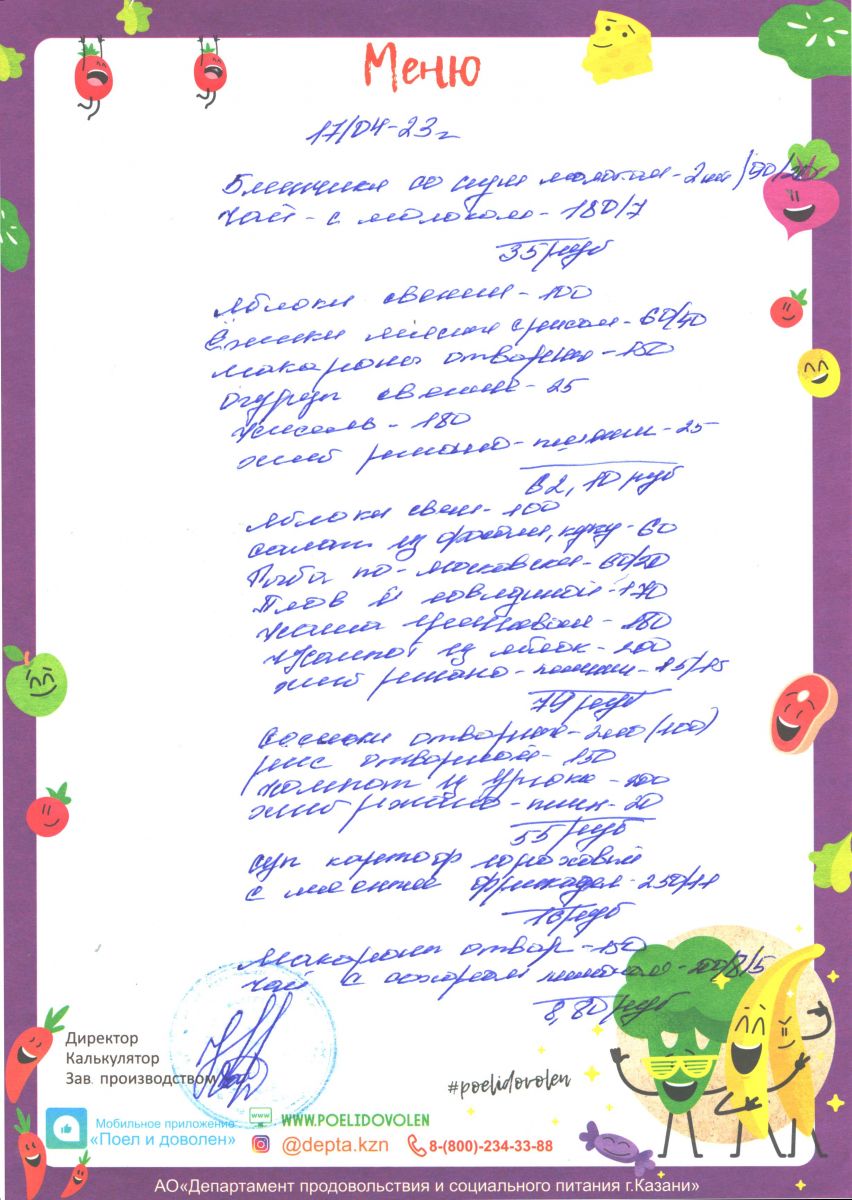 Меню
17/04-23г
Блинчики со сгущ молоком - 2шт/90/20
Чай - с молоком - 180/7
35 руб
Яблоки свежии - 100
Ёжики мясные с рисом - 60/40
Макароны отварные - 150
Огурец свежий - 25
Кисель - 180
хлеб ржано - пшен - 25
62,10 руб
Яблоки свеж - 100
салат из фасоли, кукур - 60
Рыба по - московски - 60/20
Плов говядиной - 170
Каша - 180
Компот из яблок - 200
хлеб ржано - пшен - 25/15
79 руб
Сосиски отварные - 2шт (100)
рис отварной - 150
Компот из урюка - 200
хлеб ржано - пшен - 20
55 руб
суп картоф гороховый
с мясными фрикадел - 250/11
16 руб
Макароны отвар - 150
Чай с сахаром лимоном - 200/8/5
8,80 руб
Директор
Калькулятор
Зав. производством
#poelidovolen
Мобильное приложение
«Поел и доволен»
www
WWW.POELIDOVOLEN
@depta.kzn
8-(800)-234-33-88
АО«Департамент продовольствия и социального питания г.Казани»